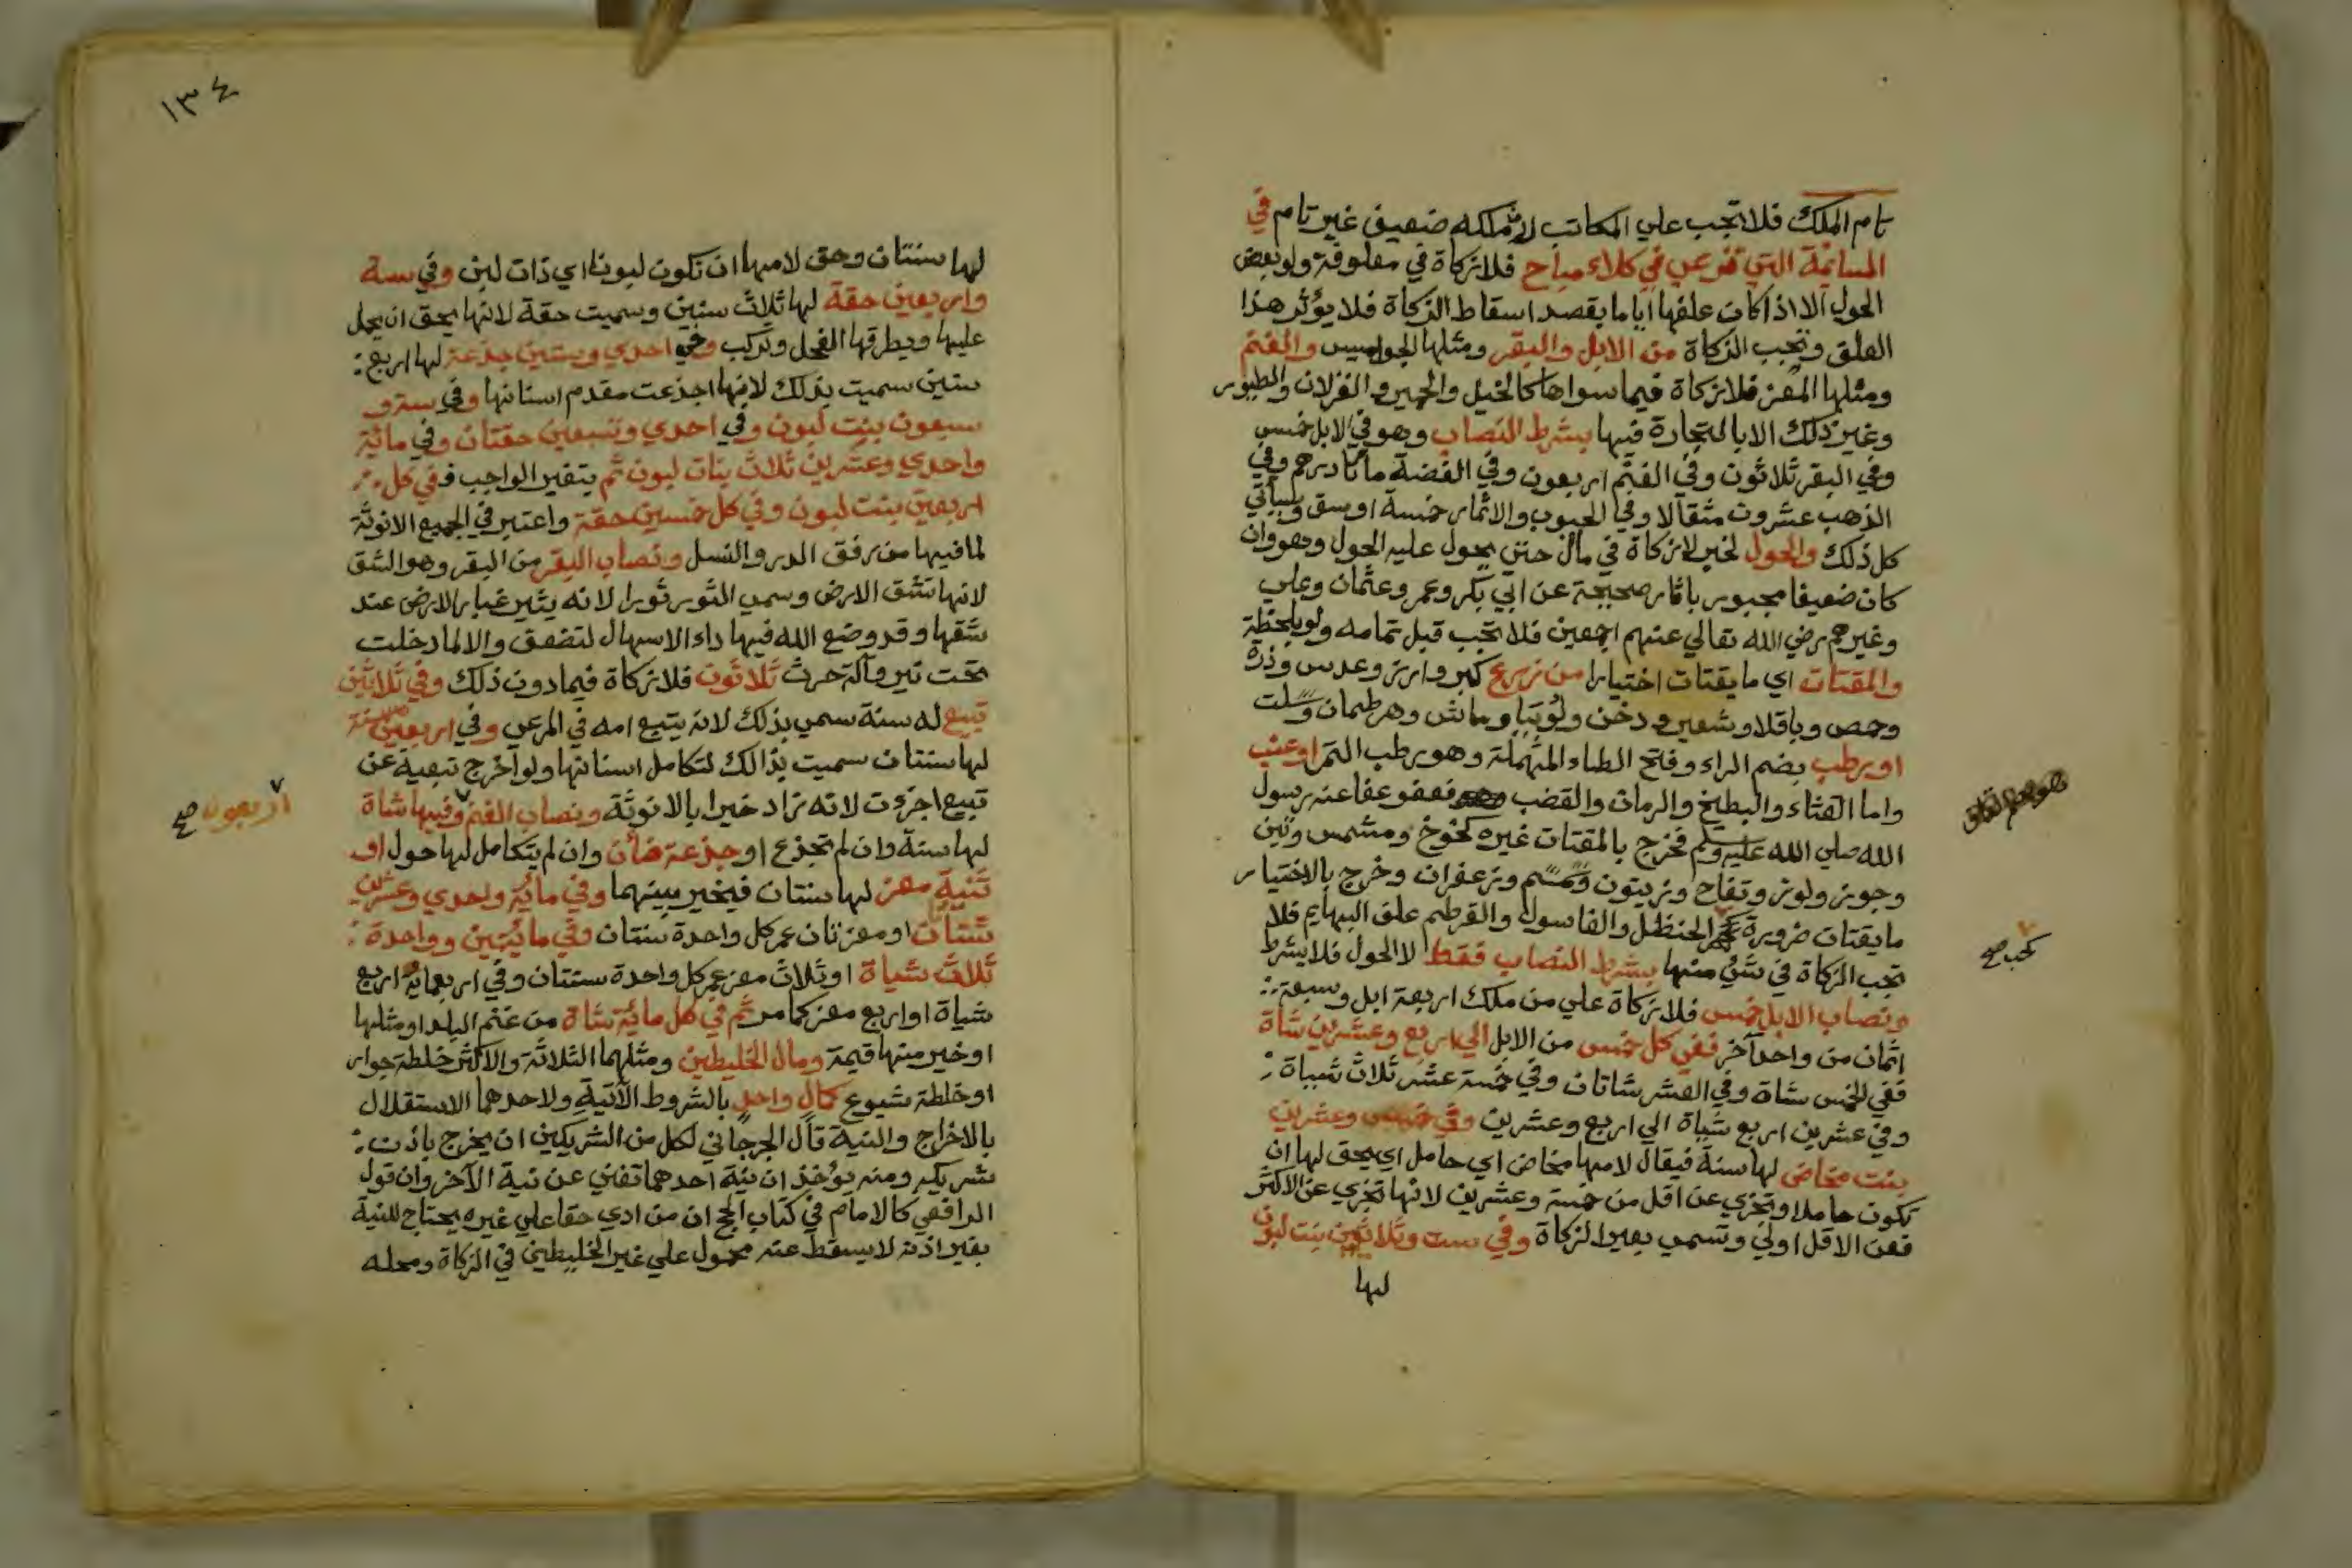 تام الملك فلا تجب علي المكاتب لان ملكه ضعيف غير تام في
السائمة التي ترعي في كلاء مباح فلا زكاة في معلوفة ولو بعض
الحول الا اذا كان علفها اياما بقصد اسقاط الزكاة فلا يؤثر هذا
العلف وتجب الزكاة من الابل والبقر ومثلها الجواميس والغنم
ومثلها المعز فلا زكاة فيما سواها كالخيل والحمير والغزلان والطيور
وغير ذلك الا بالتجارة فيها بشرط النصاب وهو في الابل خمس
وفي البقر ثلاثون وفي الغنم اربعون وفي الفضة مائتا درهم وفي
الذهب عشرون مثقالا وفي الحبوب والاثمار خمسة اوسق وسياتي
كل ذلك والحول لخبر لا زكاة في مال حتي يحول عليه الحول وهو وان
كان ضعيفا مجبور باثار صحيحة عن ابي بكر وعمر وعثمان وعلي
وغيرهم رضي الله تعالي عنهم اجمعين فلا تجب قبل تمامه ولو بلحظة
والمقتات اي ما يقتات اختيارا من زرع كبر وارز وعدس وذرة
وحمص وباقلا وشعير ودخن ولوبيا وماش وهرطمان وسلت
او رطب بضم الراء وفتح الطاء المهملة وهو رطب التمر او عنب
واما القثاء والبطيخ والرمان والقضب فعفو عفا عنه رسول
الله صلي الله عليه وسلم فخرج بالمقتات غيره كخوخ ومشمس وتين
وجوز ولوز وتفاح وزيتون وسمسم وزعفران وخرج بالاختيار
ما يقتات ضرورة الحنظل والغاسول والقرطم علف البهايم فلا
كحب صح
تجب الزكاة في شئ منها بشرط النصاب فقط لا الحول فلا يشرط
ونصاب الابل خمس فلا زكاة علي من ملك اربعة ابل وسبعة
اثمان من واحد آخر ففي كل خمس من الابل الي اربع وعشرين شاة
ففي الخمس شاة وفي العشر شاتان وفي خمسة عشر ثلاث شياة
وفي عشرين اربع شياة الي اربع وعشرين وفي خمس وعشرين
بنت مخاض لها سنة فيقال لامها مخاض اي حامل اي يحق لها ان
تكون حاملا وتجزي عن اقل من خمسة وعشرين لانها تجزي عن الاكثر
فعن الاقل اولي وتسمي بعير الزكاة وفي ست وثلاثين بنت لبون
لها
١٣٤
لها سنتان وحق لامها ان تكون لبونا اي ذات لبن وفي ستة
واربعين حقة لها ثلاث سنين وسميت حقة لانها يحق ان يحمل
عليها ويطرقها الفحل وتركب وفي احدي وستين جذعة لها اربع
سنين سميت بذلك لانها اجذعت مقدم اسنانها وفي ستة و
سبعون بنت لبون وفي احدي وتسعين حقتان وفي مائة
واحدي وعشرين ثلاث بنات لبون ثم يتغير الواجب ففي كل
اربعين بنت لبون وفي كل خمسين حقة واعتبر في الجميع الانوثة
لما فيها من رفق الدر والنسل ونصاب البقر من البقر وهو الشق
لانها تشق الارض وسمي الثور ثورا لانه يثير غبار الارض عند
شقها وقد وضع الله فيها داء الاسهال لتضعف والا لما دخلت
تحت نير وآلة حرث ثلاثون فلا زكاة فيما دون ذلك وفي ثلاثين
تبيع له سنة سمي بذلك لانه يتبع امه في المرعي وفي اربعين مسنة
لها سنتان سميت بذالك لتكامل اسنانها ولو اخرج تبيعة عن
تبيع اجزءت لانه زاد خيرا بالانوثة ونصاب الغنم وفيها شاة
اربعون صح
لها سنة وان لم تجذع او جذعة ضأن وان لم يتكامل لها حول او
ثنية معز لها سنتان فيخير بينهما وفي مائة واحدي وعشرين
شتان او معزتان عمر كل واحدة سنتان وفي مائتين وواحدة
ثلاث شياة او ثلاث معز عمر كل واحدة سنتان وفي اربعماية اربع
شياة او اربع معز كما مر ثم في كل مائة شاة من غنم البلد او مثلها
او خير منها قيمة ومال الخليطين ومثلهما الثلاثة والاكثر خلطة جوار
او خلطة شيوع كمال واحد بالشروط الآتية ولاحدهما الاستقلال
بالاخراج والنية قال الجرجاني لكل من الشريكين ان يخرج باذن
شريكه ومنه يؤخذ ان نية احدهما تغني عن نية الآخر وان قول
الرافعي كالامام في كتاب الحج ان من ادي حقا علي غيره يحتاج للنية
بغير اذنه لا يسقط عنه محمول علي غير الخليطين في الزكاة ومحله